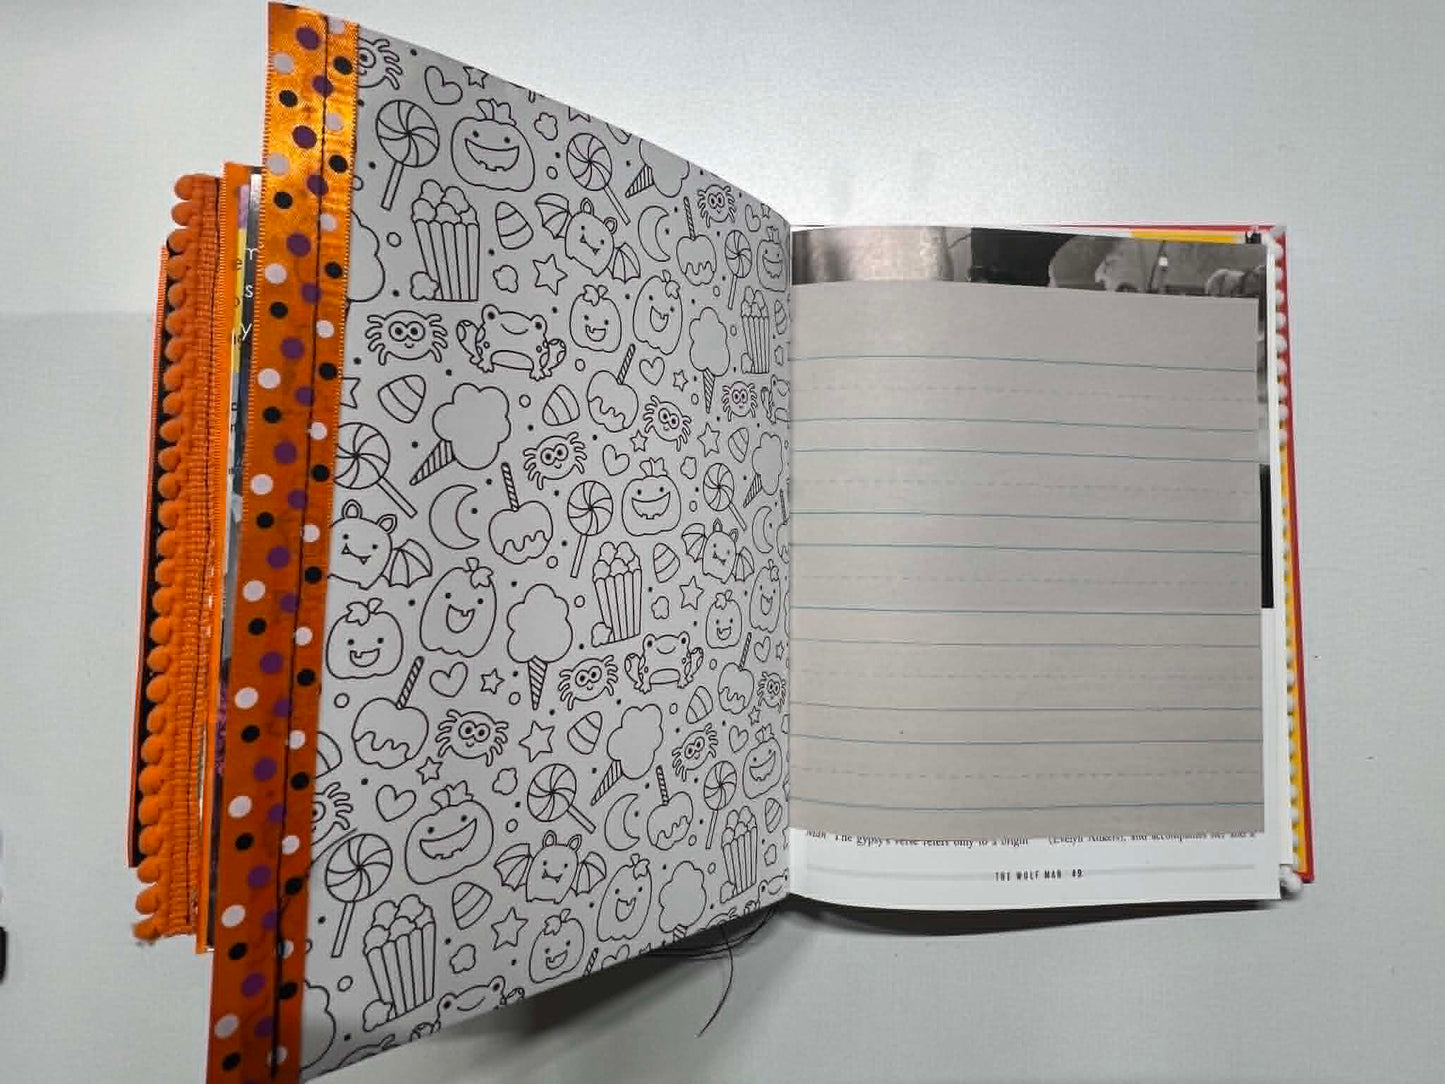 m
s
y
Man The gypsy's verse refers only to a bright (Evelyn Ankers), and accompanies her and a
THE WOLF MAN 49